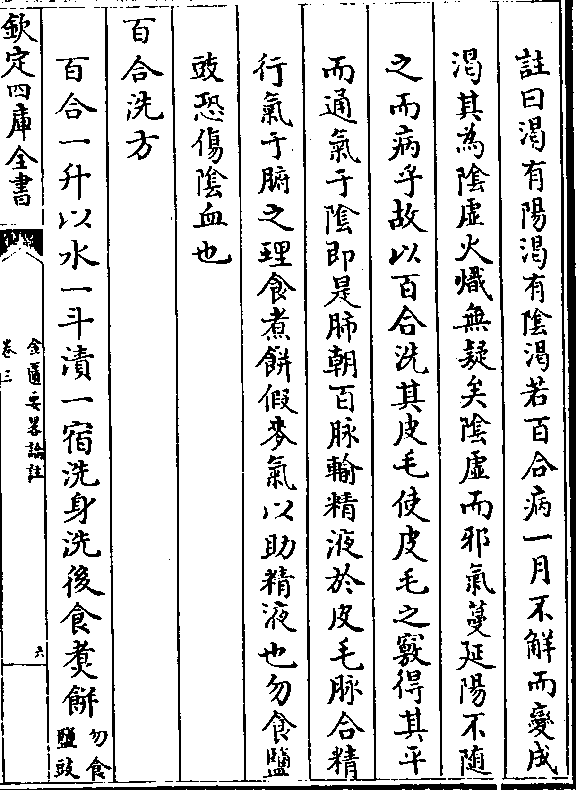 註曰渇有陽渇有陰渇若百合病一月不解而變成
渇其為陰虛火熾無疑矣陰虛而邪氣蔓延陽不随
之而病乎故以百合洗其皮毛使皮毛之竅得其平
而通氣于陰即是肺朝百脉輸精液於皮毛脉合精
行氣于腑之理食煮餅假麥氣以助精液也勿食鹽
豉恐傷隂血也
百合洗方
百合一升以水一斗漬一宿洗身洗後食煑餅勿食鹽豉
欽定四庫全書
金匱要畧論註
卷三
六